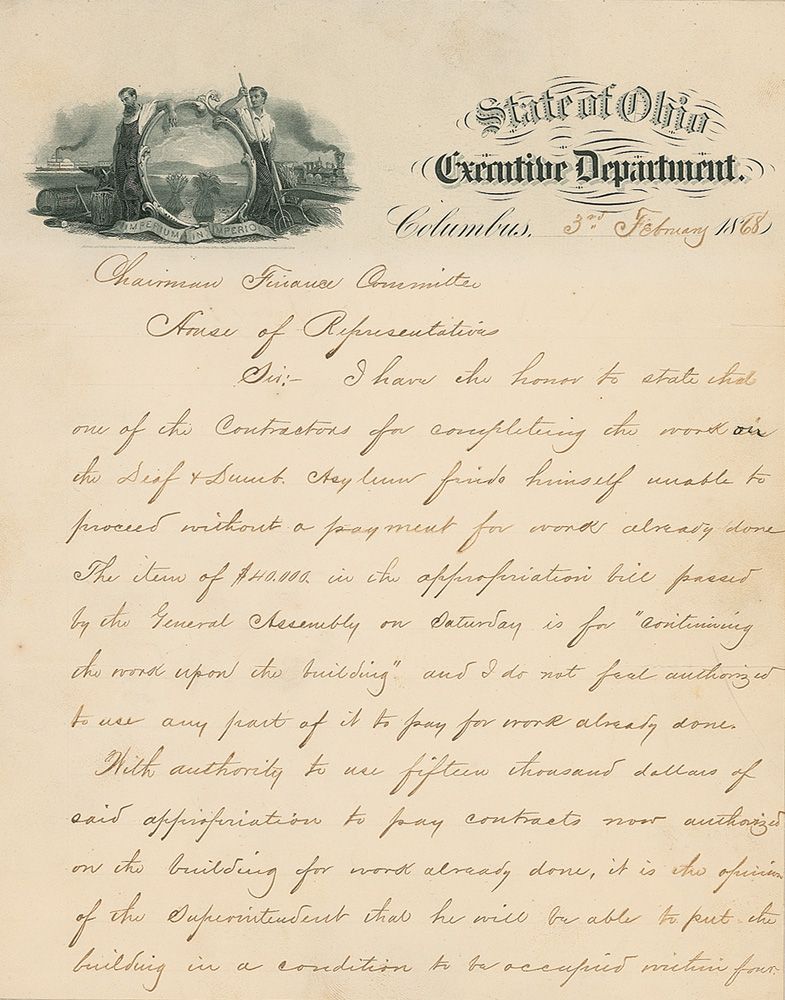 State of Ohio
Executive Department.
IMPERIUM IN IMPERIO
Columbus, 3rd February 1868
Chairman Finance Committee
House of Representatives
Sir:- I have the honor to state that
one of the Contractors for completeing the work on
the Deaf & Dumb. Asylum finds himself unable to
proceed without a payment for work already done
The item of $40.000. in the appropriation bill passed
by the General Assembly on Saturday is for "continuing
the work upon the building" and I do not feel authorized
to use any part of it to pay for work already done.
With authority to use fifteen thousand dollars of
said appropriation to pay contracts now authorized
on the building for work already done, it is the opinion
of the Superintendent that he will be able to put the
building in a condition to be occupied within four